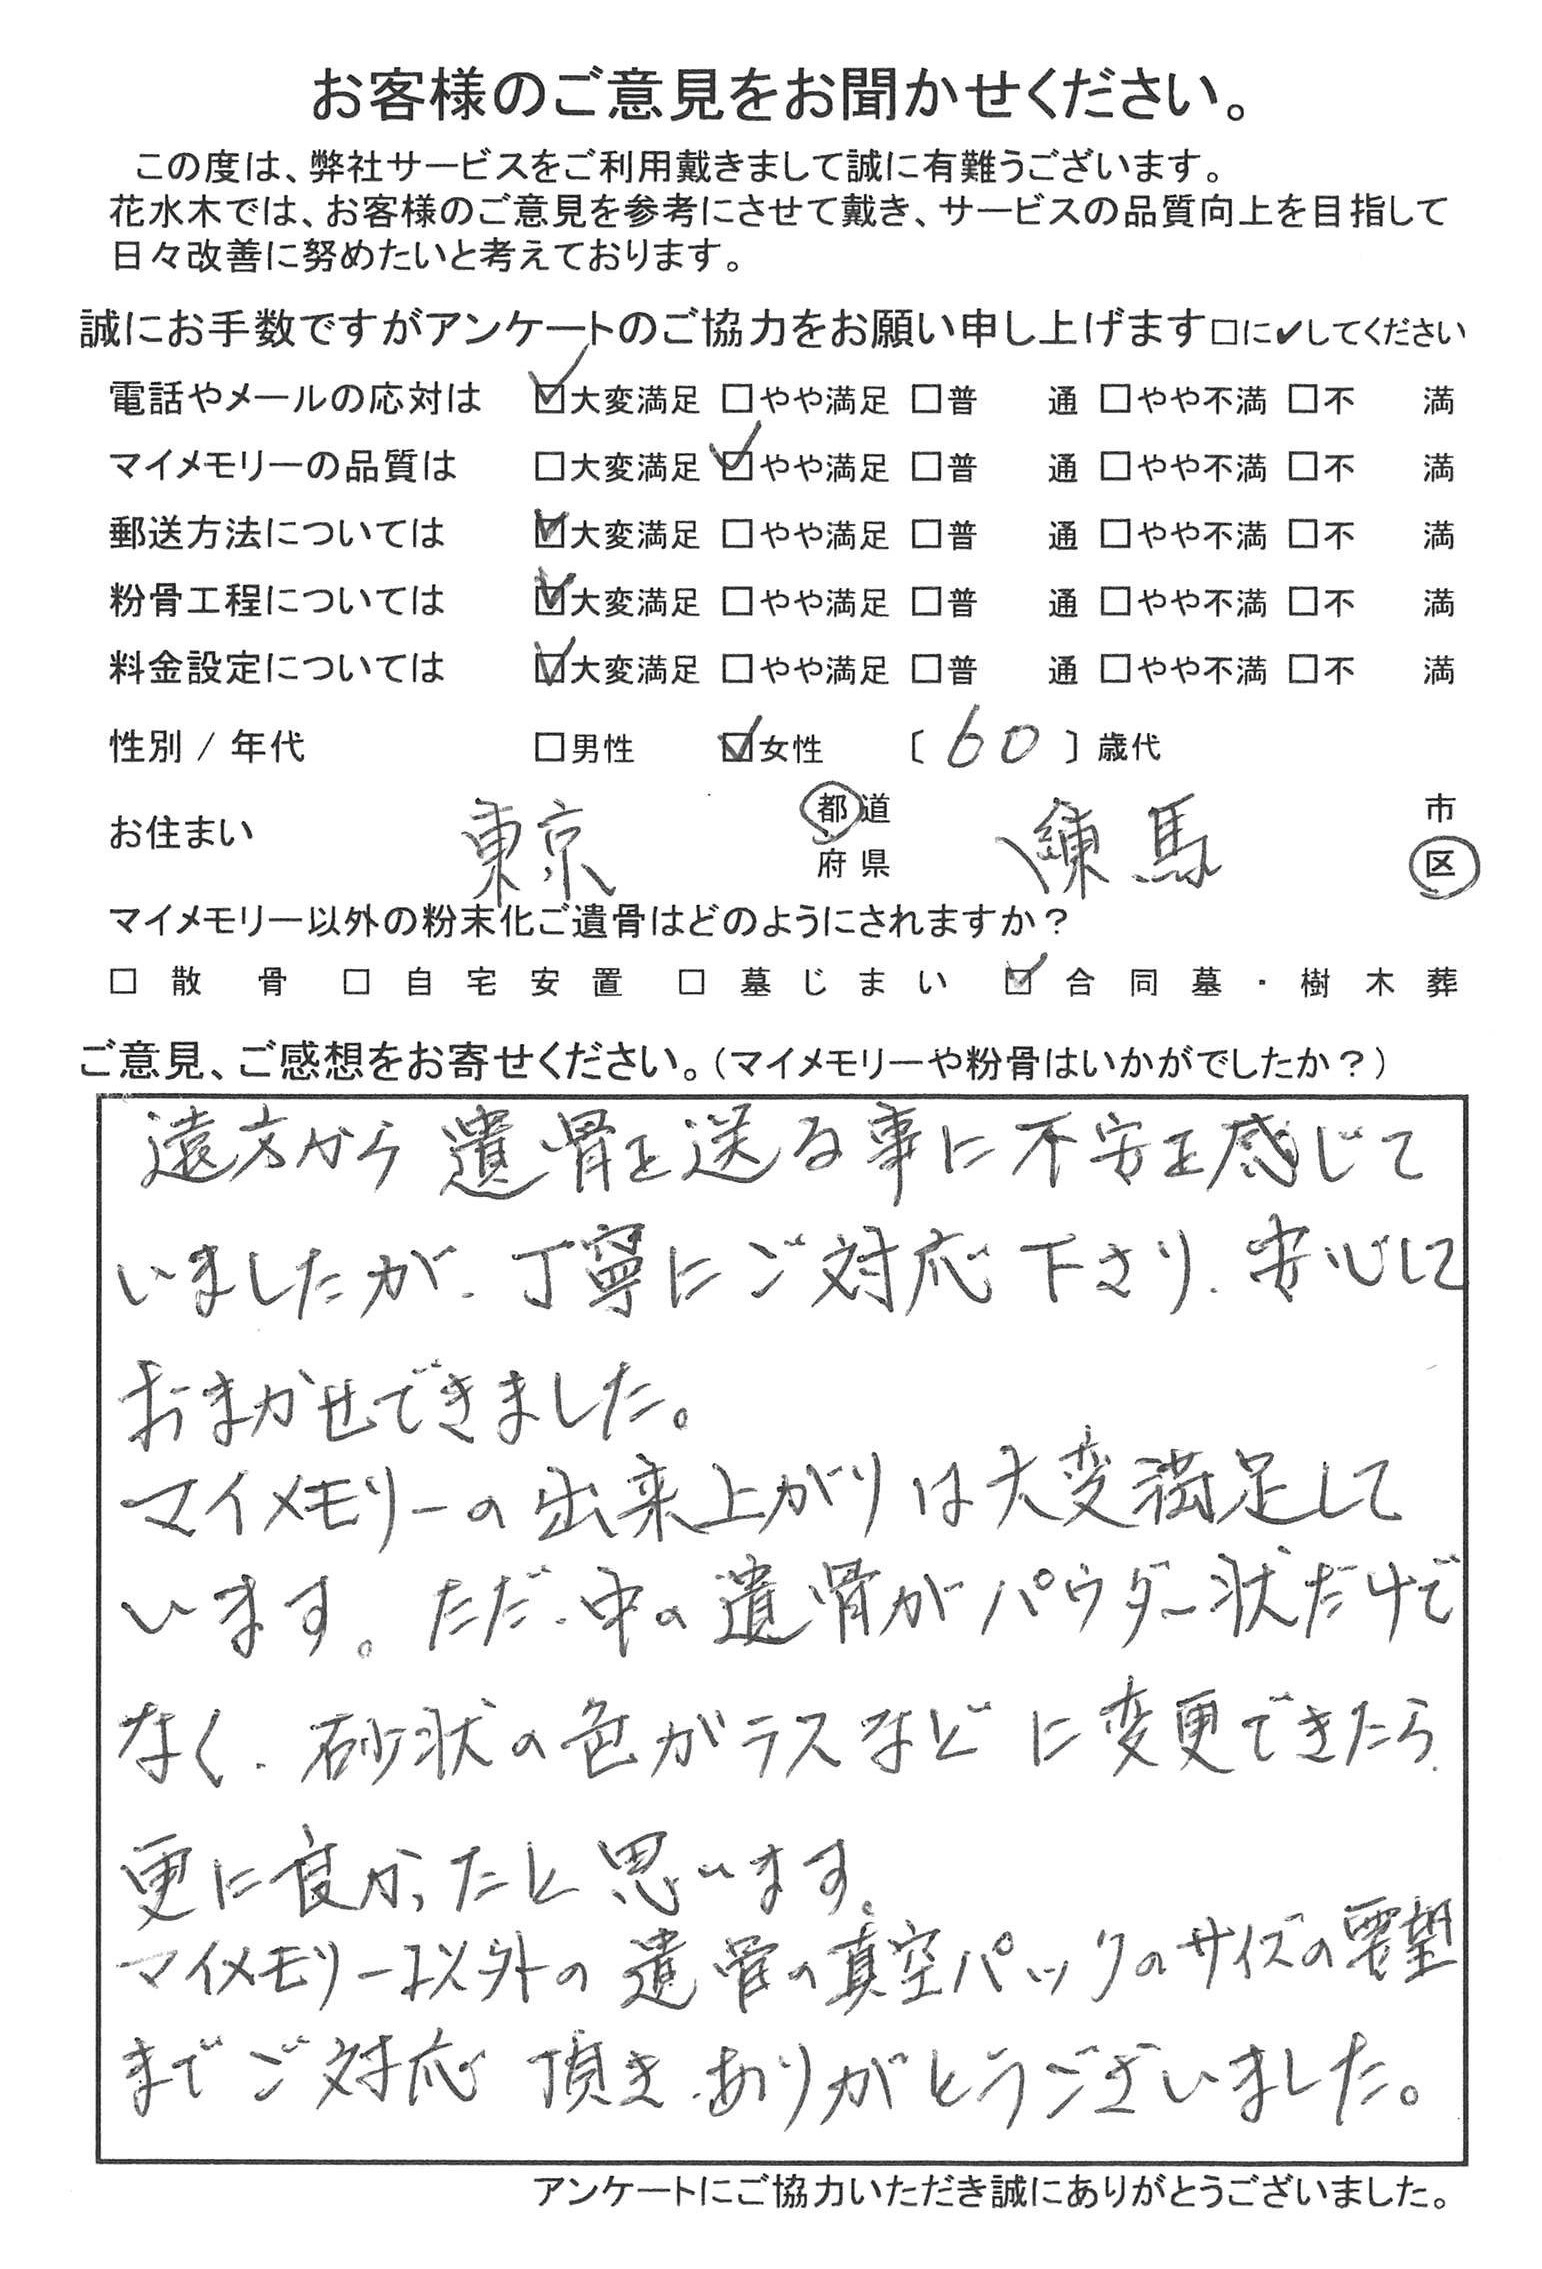 お客様のご意見をお聞かせください。
この度は、弊社サービスをご利用戴きまして誠に有難うございます。
花水木では、お客様のご意見を参考にさせて戴き、サービスの品質向上を目指して
日々改善に努めたいと考えております。
誠にお手数ですがアンケートのご協力をお願い申し上げます□に✔してください
電話やメールの応対は ☑大変満足 □やや満足 □普 通 □やや不満 □不 満
マイメモリーの品質は □大変満足 ☑やや満足 □普 通 □やや不満 □不 満
郵送方法については ☑大変満足 □やや満足 □普 通 □やや不満 □不 満
粉骨工程については ☑大変満足 □やや満足 □普 通 □やや不満 □不 満
料金設定については ☑大変満足 □やや満足 □普 通 □やや不満 □不 満
性別 / 年代 □男性 ☑女性 〔 60 〕歳代
お住まい 東京 都道府県 練馬 市区
マイメモリー以外の粉末化ご遺骨はどのようにされますか？
□ 散骨 □ 自宅安置 □ 墓じまい ☑ 合同墓・樹木葬
ご意見、ご感想をお寄せください。（マイメモリーや粉骨はいかがでしたか？）
遠方から遺骨を送る事に不安を感じて
いましたが、丁寧にご対応下さり、安心して
おまかせできました。
マイメモリーの出来上がりは大変満足して
います。ただ、中の遺骨がパウダー状だけで
なく、砂状の色ガラスなどに変更できたら、
更に良かったと思います。
マイメモリー以外の遺骨の真空パックのサイズの要望
までご対応頂き、ありがとうございました。
アンケートにご協力いただき誠にありがとうございました。